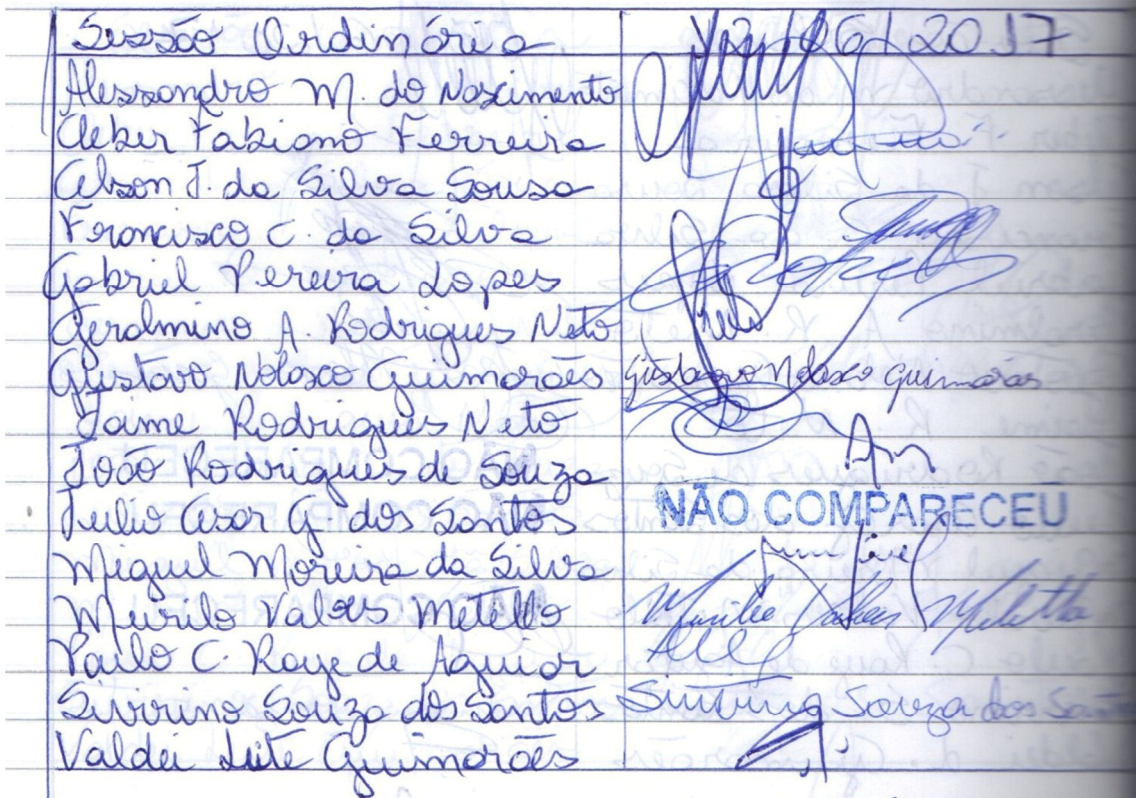 Sessão Ordinária 12/06/2017
Alessandro M. do Nascimento
Cleber Fabiano Ferreira
Celson J. da Silva Sousa
Francisco C. da Silva
Gabriel Pereira Lopes
Geralmino A. Rodrigues Neto
Gustavo Nolasco Guimarães Gustavo Nolasco Guimarães
Jaime Rodrigues Neto
João Rodrigues de Souza
Julio Cesar G. dos Santos NÃO COMPARECEU
Miguel Moreira da Silva
Murilo Valoes Metello
Paulo C. Raye de Aguiar
Sivirino Souza dos Santos Souza dos
Valdei Leite Guimarães